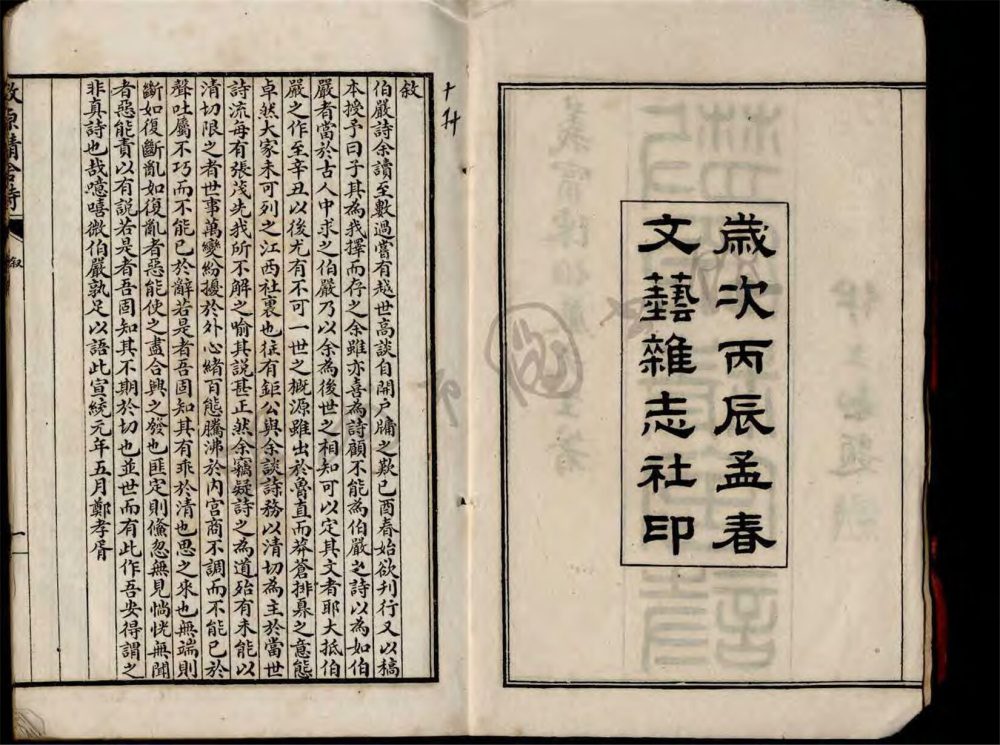 歲次丙辰孟春
文藝雜志社印
敘
伯嚴詩余讀至數過嘗有越世高談自開户牖之歎已酉春始欲刊行又以稿
本授予曰子其為我擇而存之余雖亦喜為詩顧不能為伯嚴之詩以為如伯
嚴者當於古人中求之伯嚴乃以余為後世之相知可以定其文者耶大抵伯
嚴之作至辛丑以後尤有不可一世之概源雖出於魯直而莽蒼排奡之意態
卓然大家未可列之江西社裏也往有鉅公與余談詩務以清切為主於當世
詩流每有張茂先我所不解之喻其說甚正然余竊疑詩之為道殆有未能以
清切限之者世事萬變紛擾於外心緒百態騰沸於內宮商不調而不能已於
聲吐屬不巧而不能已於辭若是者吾固知其有乖於清也思之來也無端則
斷如復斷亂如復亂者惡能使之盡合興之發也匪定則儵忽無見惝恍無聞
者惡能責以有說若是者吾固知其不期於切也並世而有此作吾安得謂之
非真詩也哉噫嘻微伯嚴孰足以語此宣統元年五月鄭孝胥
散原精舍詩
叙
一